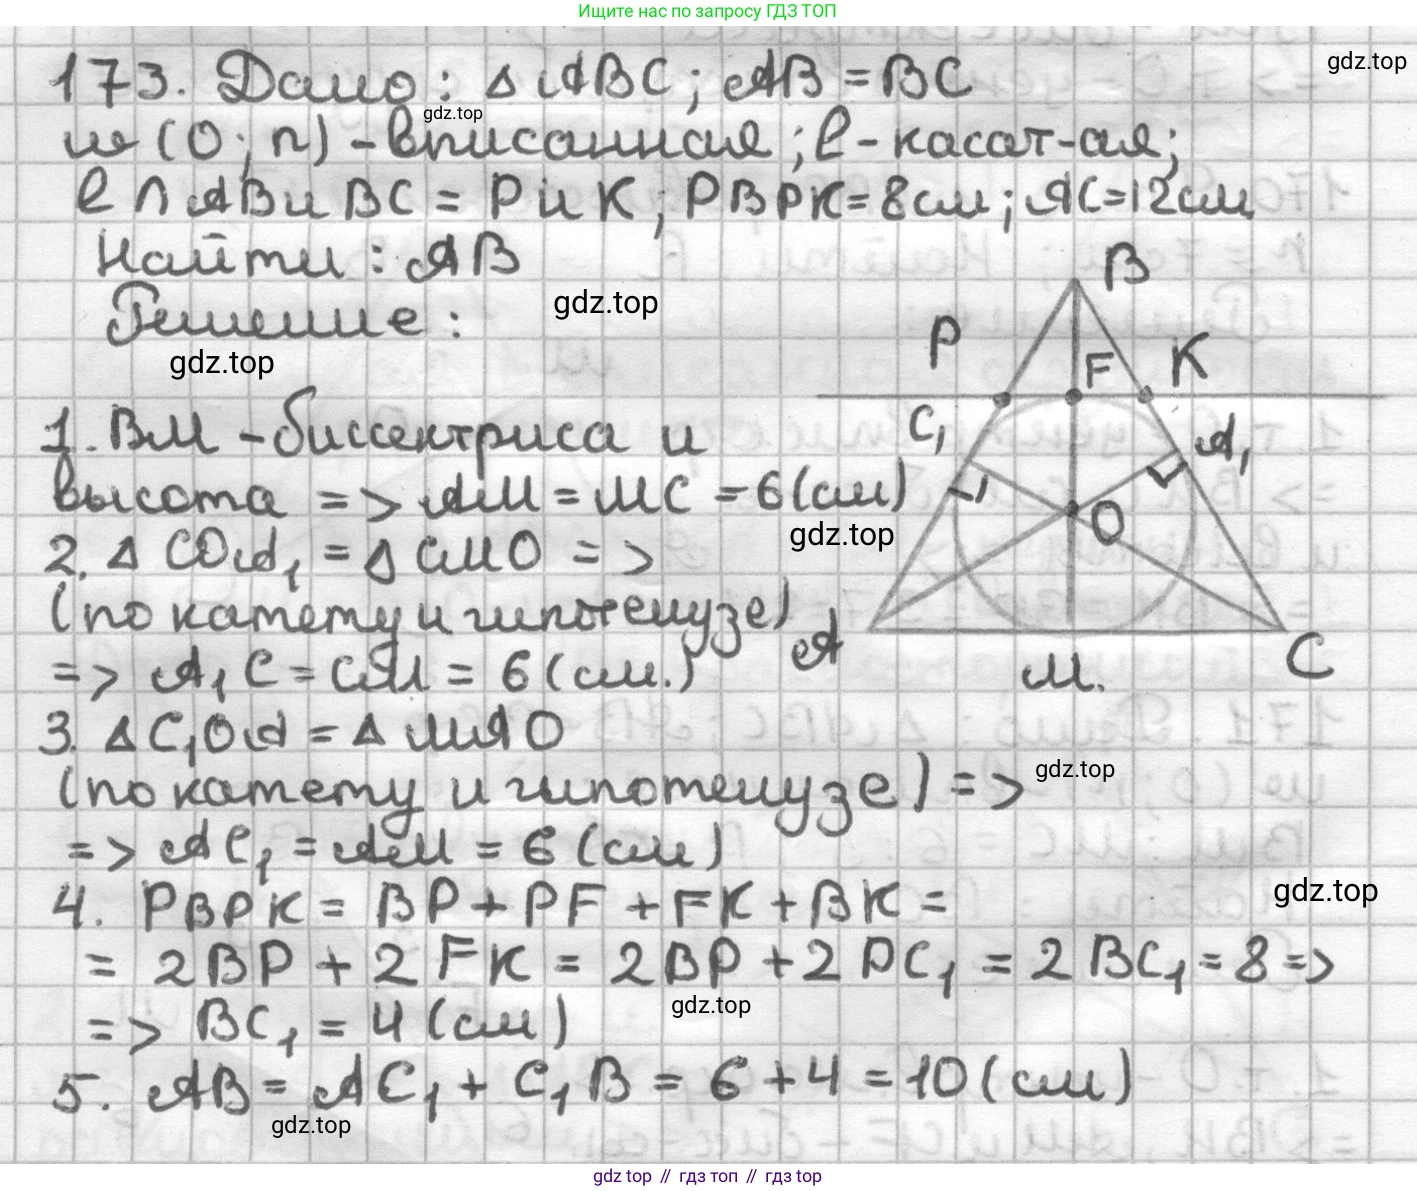 Ищите нас по запросу ГДЗ ТОП
173. Дано: Δ ABC; AB = BC
gdz.top
gdz.top
ω (O; r) - вписанная; l - касат-ая;
l ∩ AB и BC = P и K; PBPK = 8 см; AC = 12 см
Найти: AB
B
Решение:
gdz.top
P
F
K
gdz.top
C₁
A₁
1. BM - биссектриса и
высота => AM = MC = 6 (см)
O
gdz.top
2. Δ COA₁ = Δ CMO =>
(по катету и гипотенузе)
A
C
M.
=> A₁C = CM = 6 (см.)
3. Δ C₁OA = Δ MAO
(по катету и гипотенузе) =>
gdz.top
=> AC₁ = AM = 6 (см)
4. PBPK = BP + PF + FK + BK =
gdz.top
= 2BP + 2FK = 2BP + 2PC₁ = 2BC₁ = 8 =>
gdz.top
=> BC₁ = 4 (см)
5. AB = AC₁ + C₁B = 6 + 4 = 10 (см)
gdz.top
gdz top // гдз топ // гдз top